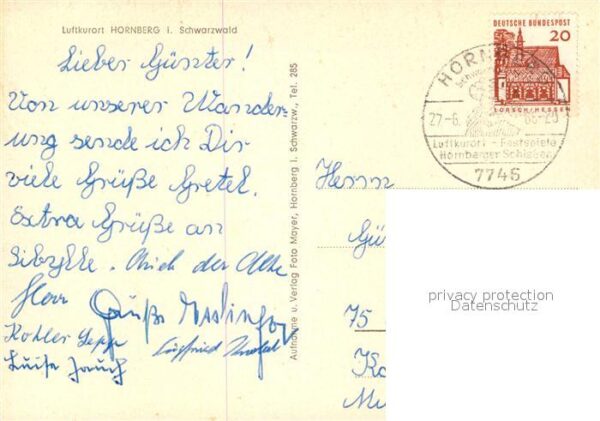 Luftkurort HORNBERG i. Schwarzwald
Lieber Günter!
Von unserer Wander-
ung sende ich Dir
viele Grüße Gretel.
Extra Grüße an
Sibylle. Auch der Alte
Herr
Kohler Sepp
Luise Jauch
Aufnahme u. Verlag Foto Mayer, Hornberg i. Schwarzw., Tel. 285
DEUTSCHE BUNDESPOST
20
LORSCH/HESSEN
HORNBERG
27-6.
Luftkurort - Festspiele
Hornberger Schießen
7746
Herrn
Gü
75
Ka
privacy protection
Datenschutz